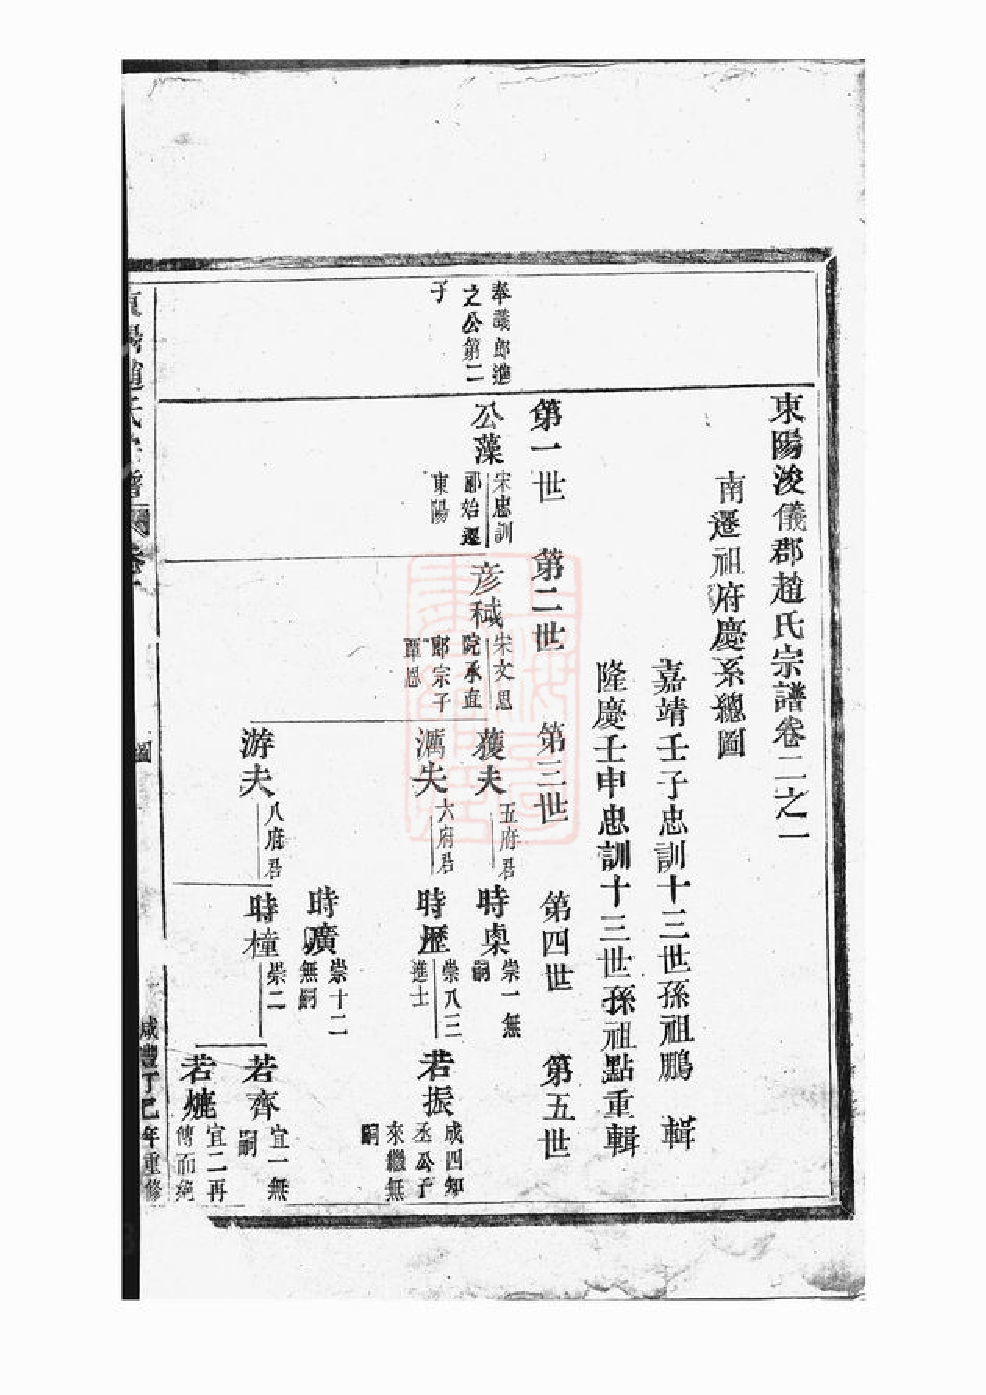 東陽浚儀郡趙氏宗譜卷二之一
南遷祖府慶系總圖
嘉靖壬子忠訓十三世孫祖鵬 輯
隆慶壬申忠訓十三世孫祖點重輯
第一世 第二世 第三世 第四世 第五世
奉議郎進
之公第二
子
公藻
宋忠訓
郎始遷
東陽
彦稢
宋文思
院承直
郎宗子
覃恩
夫
五府君
時㮚
崇一無
嗣
夫
六府君
時歷
崇八三
進士
若振
成四知
丞公子
來繼無
嗣
時曠
崇十二
無嗣
游夫
八府君
時橦
崇二
若齊
宜一無
嗣
若
宜二再
傳而絕
東陽趙氏宗譜
圖
咸豐丁巳年重修